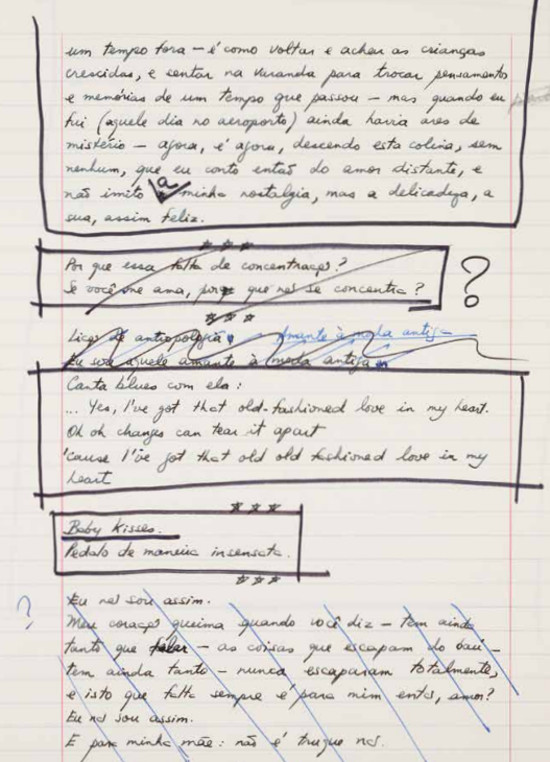 um tempo fora – é como voltar e achar as crianças
crescidas, e sentar na varanda para trocar pensamentos
e memórias de um tempo que passou – mas quando eu
fui (aquele dia no aeroporto) ainda havia ares de
mistério – agora, é agora, descendo esta colina, sem
nenhum, que eu conto então do amor distante, e
não imito a minha nostalgia, mas a delicadeza, a
sua, assim feliz.
* * *
Por que essa falta de concentração?
Se você me ama, por que não se concentra?
?
* * *
Lição de antropologia Amante à moda antiga
Eu sou aquele amante à moda antiga
Canta blues com ela:
... Yes, I've got that old-fashioned love in my heart.
Oh oh changes can tear it apart
'cause I've got that old old fashioned love in my
heart
* * *
Baby kisses.
Pedalo de maneira insensata.
* * *
? Eu não sou assim.
Meu coração queima quando você diz – tem ainda
tanto que falar – as coisas que escapam do baú –
tem ainda tanto – nunca escaparam totalmente,
e isto que falta sempre é para mim então, amor?
Eu não sou assim.
E para minha mãe: não é truque não.